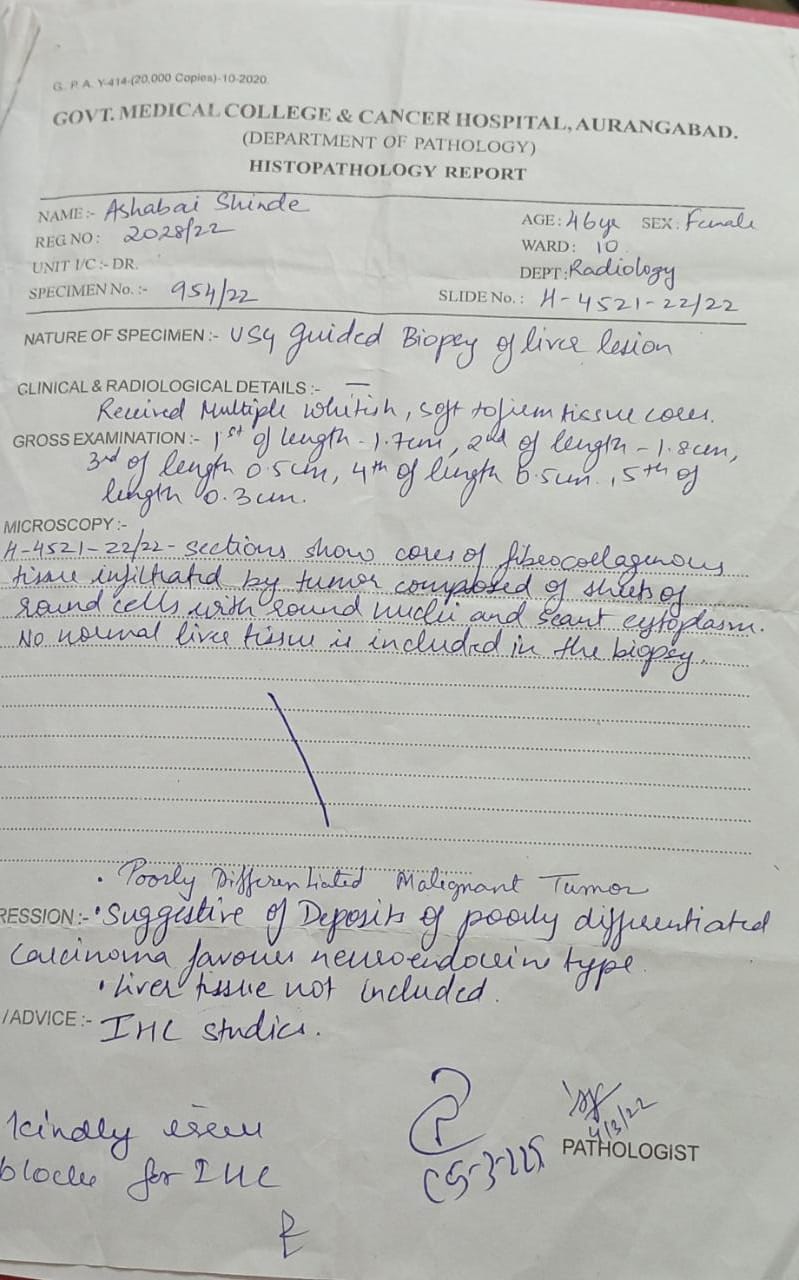 G. P. A. Y-414-(20,000 Copies)-10-2020
GOVT. MEDICAL COLLEGE & CANCER HOSPITAL, AURANGABAD.
(DEPARTMENT OF PATHOLOGY)
HISTOPATHOLOGY REPORT
NAME :- Ashabai Shinde AGE : 46 yr SEX : Female
REG NO : 2028/22 WARD : 10
UNIT I/C :- DR. DEPT : Radiology
SPECIMEN No. :- 954/22 SLIDE No. : H-4521-22/22
NATURE OF SPECIMEN :- USG guided Biopsy of liver lesion
CLINICAL & RADIOLOGICAL DETAILS :- —
Received Multiple whitish, soft to firm tissue cores.
GROSS EXAMINATION :- 1st of length - 1.7cm, 2nd of length - 1.8cm,
3rd of length 0.5cm, 4th of length 0.5cm, 5th of
length 0.3cm.
MICROSCOPY :-
H-4521-22/22 - sections show cores of fibrocollagenous
tissue infiltrated by tumor composed of sheets of
round cells with round nuclei and scant cytoplasm.
No normal liver tissue is included in the biopsy.
• Poorly Differentiated Malignant Tumor
RESSION :- • Suggestive of Deposits of poorly differentiated
carcinoma favours neuroendocrine type.
• Liver tissue not included.
/ADVICE :- IHC studies.
4/3/22
PATHOLOGIST
kindly issue
blocks for IHC